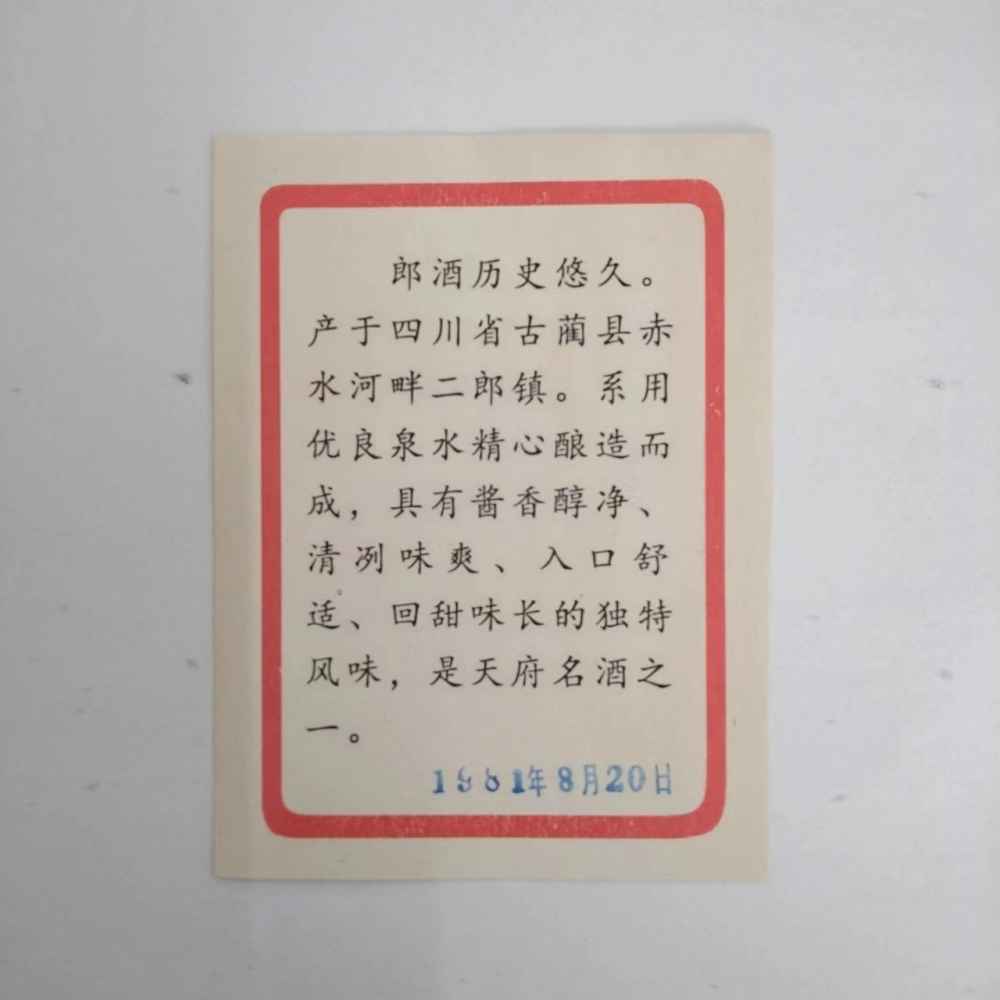 郎酒历史悠久。
产于四川省古蔺县赤
水河畔二郎镇。系用
优良泉水精心酿造而
成，具有酱香醇净、
清冽味爽、入口舒
适、回甜味长的独特
风味，是天府名酒之
一。
1981年8月20日